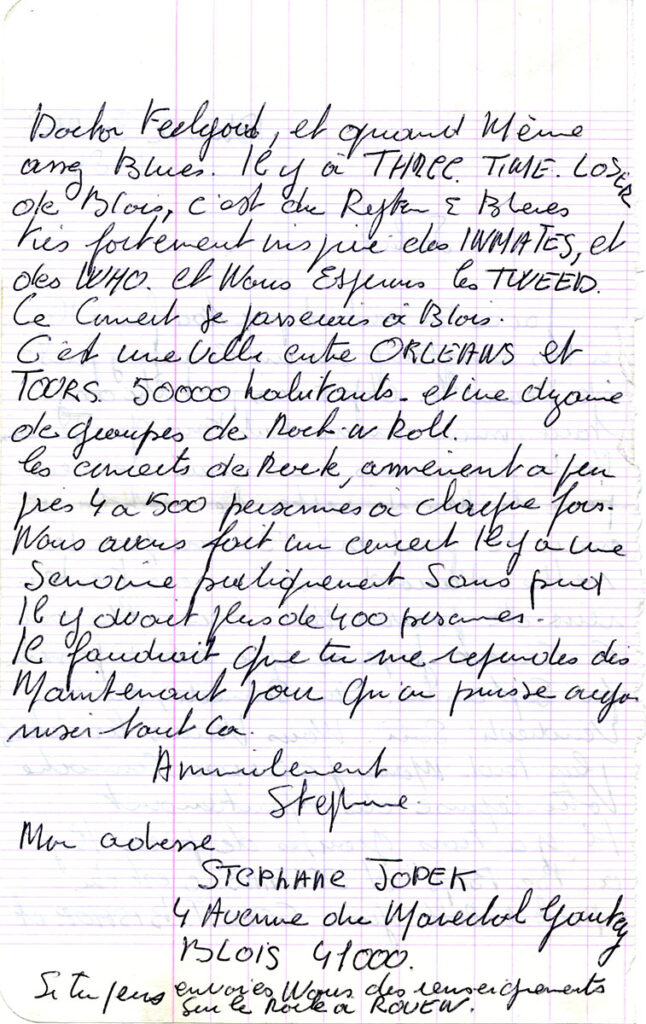 Doctor Feelgood, et quand Même
assez Blues. Il y à THREE. TIME. LOSER
de Blois, c'est du Rythm & Blues
très fortement inspiré des INMATES, et
des WHO. et Nous Esperons les TWEED.
Ce Concert se passerais à Blois.
C'est une ville entre ORLEANS et
TOURS. 50000 habitants. et une dizaine
de groupes de Rock-n Roll.
les concerts de Rock, amènent à peu
près 4 à 500 personnes à chaque fois.
Nous avons fait un concert Il y à une
Semaine pratiquement Sans pub
Il y avait plus de 400 personnes.
Il faudrait que tu me repondes dès
Maintenant pour qu'on puisse orga
niser tout ça.
Amicalement
Stephane
Mon adresse
STEPHANE JOPEK
4 Avenue du Marechal
BLOIS 41000.
Si tu peus envoies Nous des renseignements
Sur le Rock à ROUEN.